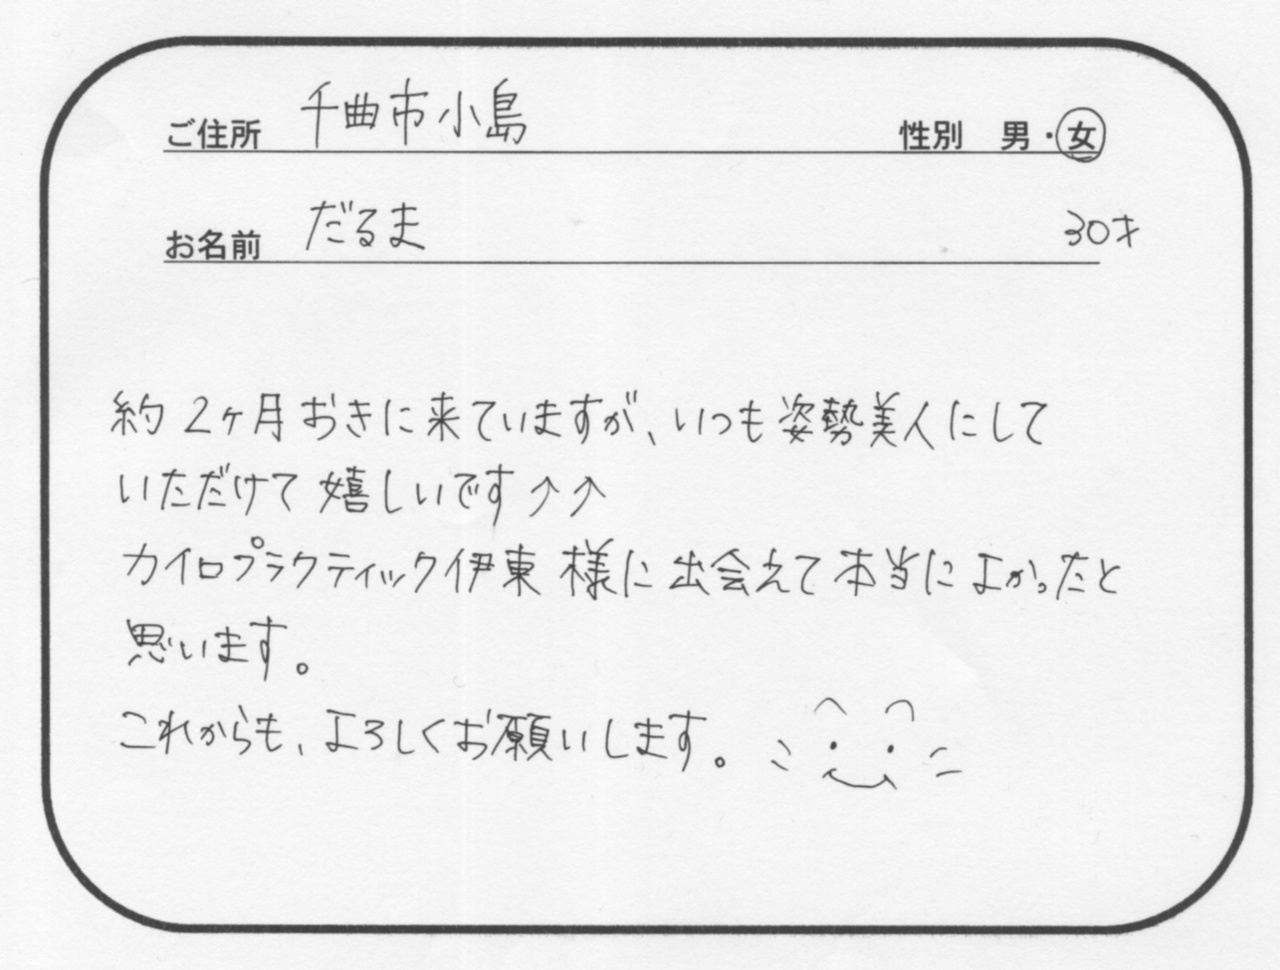 ご住所 千曲市小島 性別 男・女
お名前 だるま 30才
約2ヶ月おきに来ていますが、いつも姿勢美人にして
いただけて嬉しいです↑↑
カイロプラクティック伊東様に出会えて本当によかったと
思います。
これからも、よろしくお願いします。